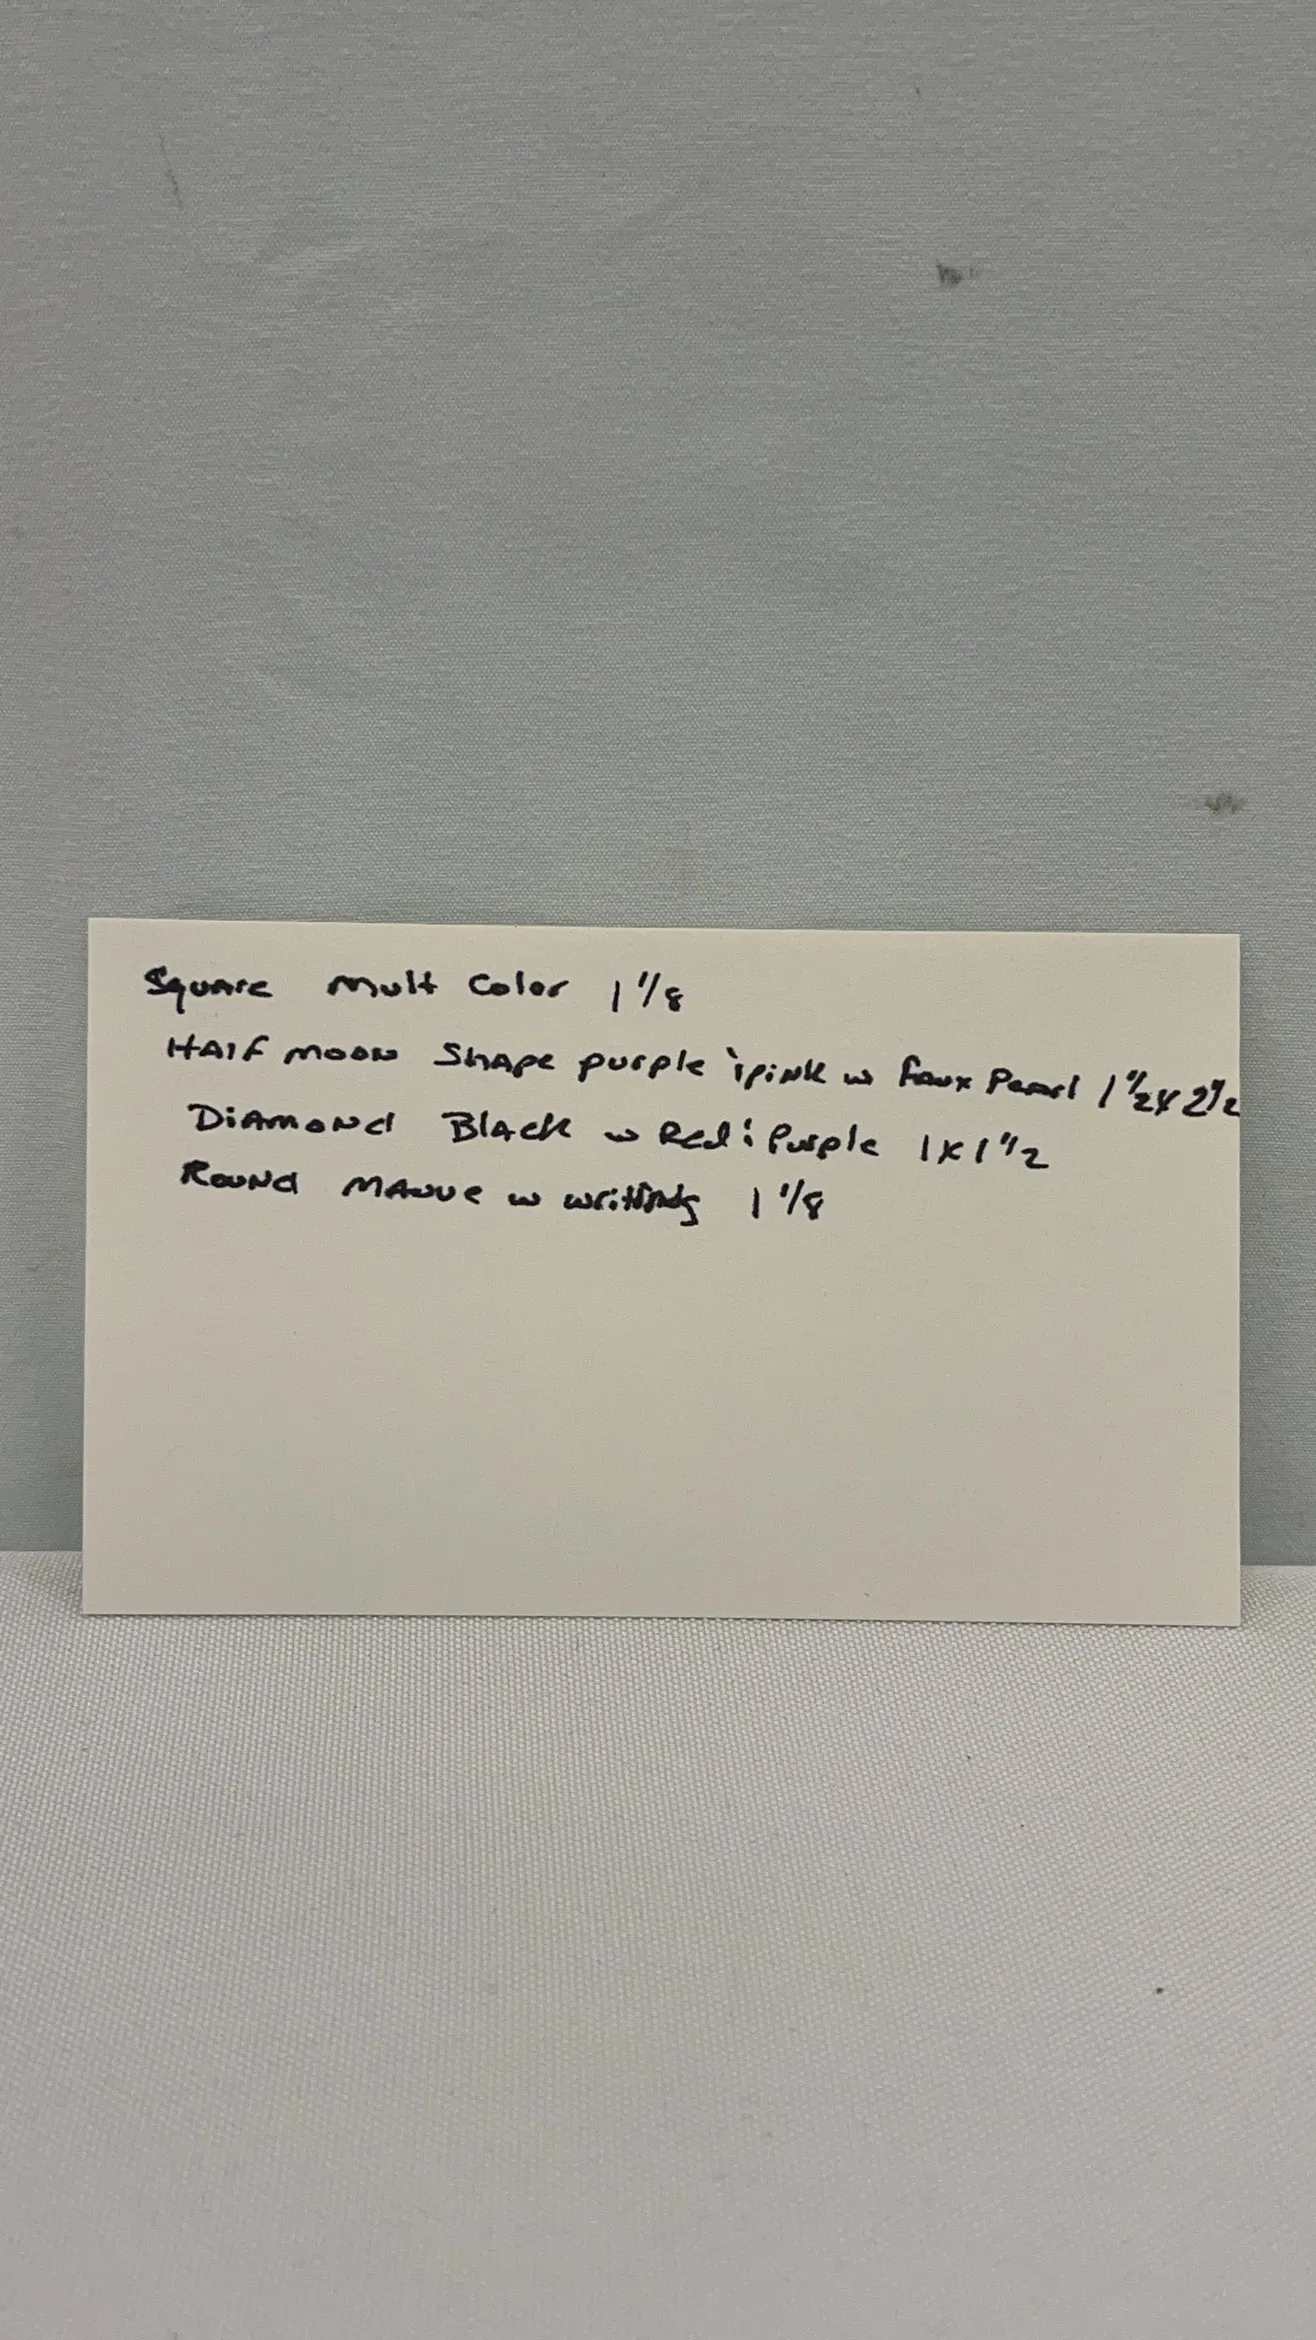 Square mult Color 1 1/8
HAlf moon ShApe purple ; pink w faux Pearl 1 1/2 x 2 1/2
DiAmond BlAck w Red ; Purple 1 x 1 1/2
Round MAuve w writting 1 1/8